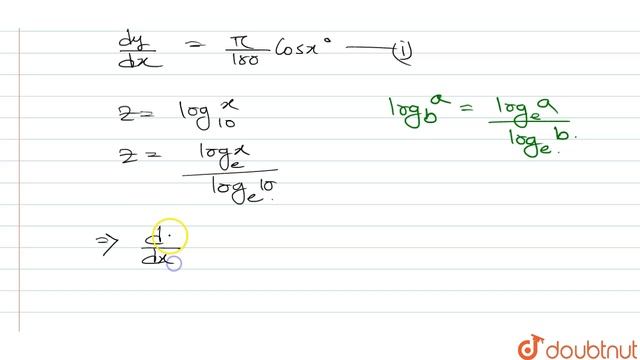 dy/dx = π/180 Cosx° — (i)
z = log₁₀x
log_b a = logₑa / logₑb.
z = logₑx / logₑ10.
⇒ d/dx
doubtnut